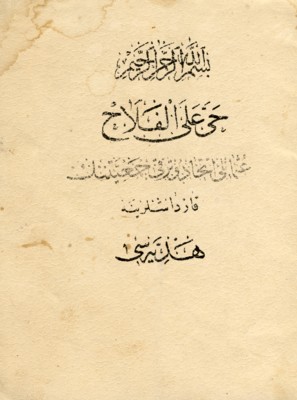 بسم الله الرحمن الرحيم
حى على الفلاح
عثمانلى اتحاد وترقى جمعيتنك
قارداشلرينه
هديه سى